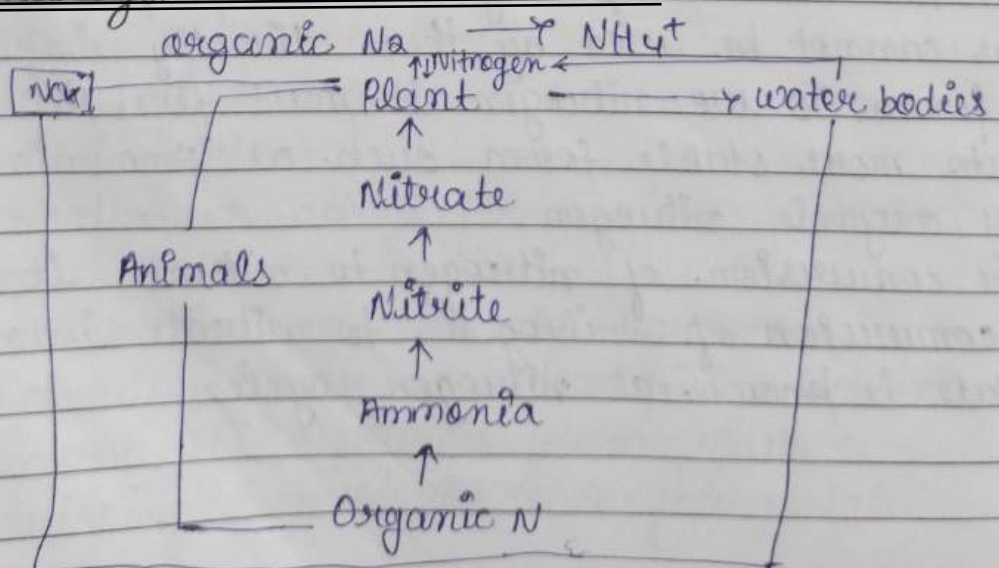 organic Na → NH4+
↑↓Nitrogen ←
NOx Plant → water bodies
↑
Nitrate
↑
Animals
Nitrite
↑
Ammonia
↑
Organic N